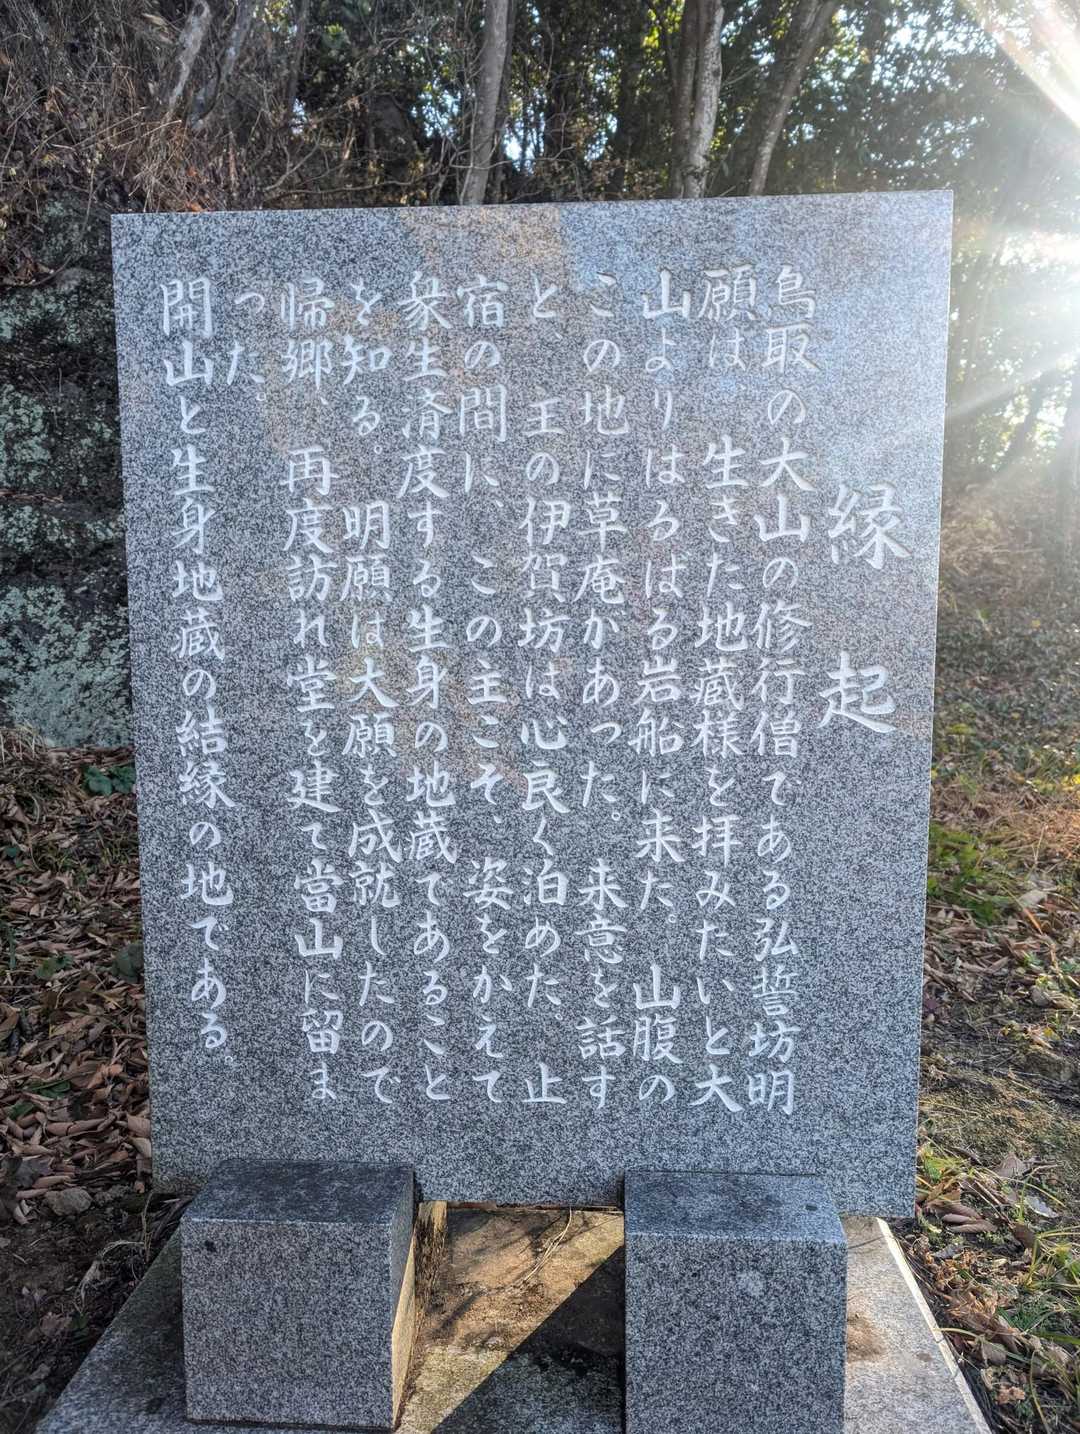 縁起
鳥取の大山の修行僧である弘誓坊明
願は、生きた地蔵様を拝みたいと大
山よりはるばる岩船に来た。山腹の
この地に草庵があった。来意を話す
と、主の伊賀坊は心良く泊めた。止
宿の間に、この主こそ、姿をかえて
衆生済度する生身の地蔵であること
を知る。明願は大願を成就したので
帰郷、再度訪れ堂を建て當山に留ま
った。
開山と生身地蔵の結縁の地である。